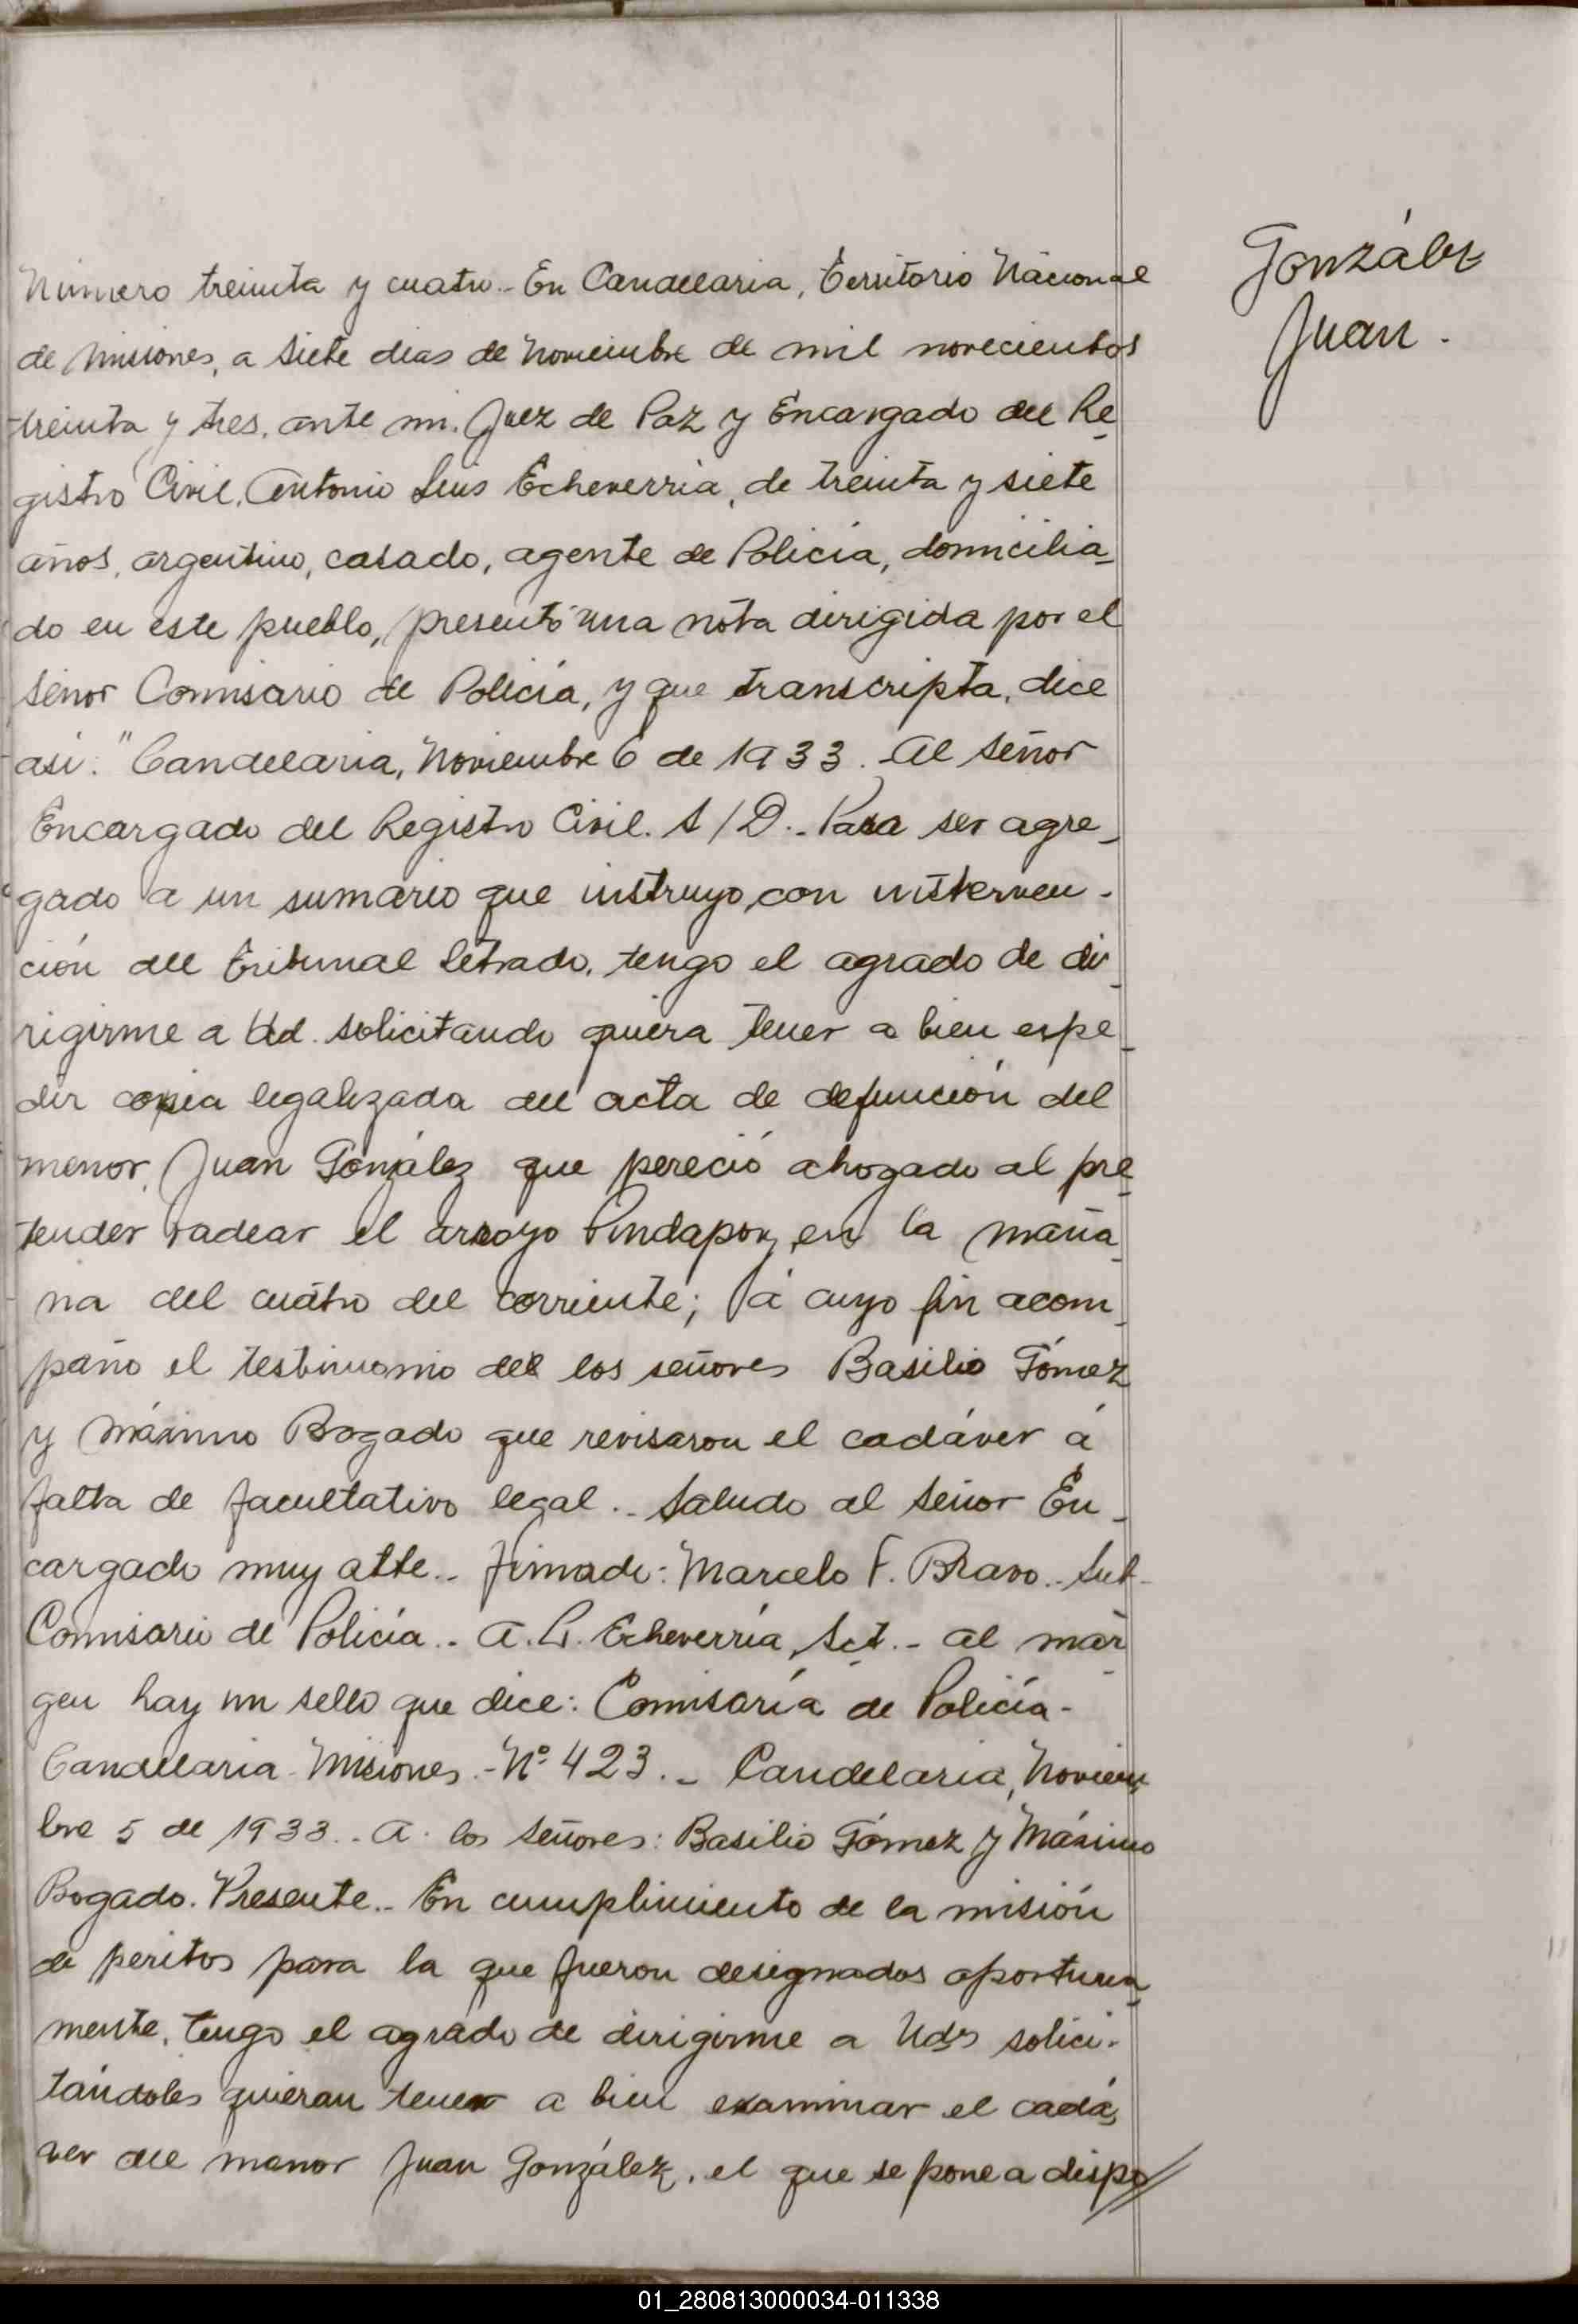 Número treinta y cuatro.- En Candelaria, Territorio Nacional
de Misiones, a siete dias de Noviembre de mil novecientos
treinta y tres, ante mi, Juez de Paz y Encargado del Re-
gistro Civil, Antonio Luis Echeverria, de treinta y siete
años, argentino, casado, agente de Policía, domicilia-
do en este pueblo, presentó una nota dirigida por el
Señor Comisario de Policía, y que transcripta, dice
asi: "Candelaria, Noviembre 6 de 1933. Al Señor
Encargado del Registro Civil. S/D.- Para ser agre-
gado a un sumario que instruyo, con interven-
ción del Tribunal Letrado, tengo el agrado de di-
rigirme a Ud. solicitando quiera tener a bien espe-
dir copia legalizada del acta de defunción del
menor, Juan González que pereció ahogado al pre-
tender vadear el arroyo Pindapoy, en la maña-
na del cuatro del corriente; á cuyo fin acom-
paño el testimonio del los señores Basilio Gómez
y Máximo Bogado que revisaron el cadáver á
falta de facultativo legal.- Saludo al Señor En-
cargado muy atte.- Firmado: Marcelo F. Bravo.- Sub-
Comisario de Policía.- A. L. Echeverría, Sct.- Al mar-
gen hay un sello que dice: Comisaría de Policía-
Candelaria-Misiones.- Nº 423.- Candelaria, Noviem-
bre 5 de 1933.- A los Señores: Basilio Gómez y Máximo
Bogado. Presente.- En cumplimiento de la misión
de peritos para la que fueron designados oportuna-
mente, tengo el agrado de dirigirme a Uds solici-
tándoles quieran tener a bien examinar el cadá-
ver del menor Juan González, el que se pone a dispo//
González
Juan.
01_280813000034-011338